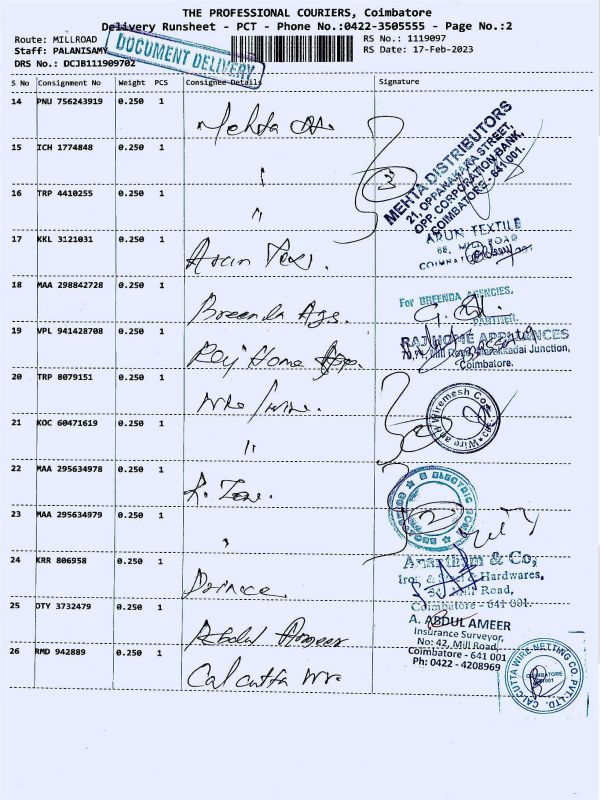 THE PROFESSIONAL COURIERS, Coimbatore
Delivery Runsheet - PCT - Phone No.:0422-3505555 - Page No.:2
Route: MILLROAD RS No.: 1119097
Staff: PALANISAMY RS Date: 17-Feb-2023
DRS No.: DCJB111909702
DOCUMENT DELIVERY
S No Consignment No Weight PCS Consignee Details Signature
14 PNU 756243919 0.250 1
Mehta
MEHTA DISTRIBUTORS
21, OPPANAKARA STREET,
OPP. CORPORATION BANK,
COIMBATORE - 641 001.
15 ICH 1774848 0.250 1
"
3
16 TRP 4410255 0.250 1
"
17 KKL 3121031 0.250 1
Arun Tex.
ARUN TEXTILE
68, MILL ROAD
18 MAA 298842728 0.250 1
Breenda Ags.
For BREENDA AGENCIES,
PARTNER.
19 VPL 941428708 0.250 1
Raj Home App.
RAJ HOME APPLIANCES
Mill Road, Junction,
Coimbatore.
20 TRP 8079151 0.250 1
Wiremesh Co
Wire and
21 KOC 60471619 0.250 1
"
22 MAA 295634978 0.250 1
R. Zone.
ELECTRIC ZONE
COIMBATORE
2
23 MAA 295634979 0.250 1
"
24 KRR 806958 0.250 1
Prince
Anantham & Co,
Iron & Steel & Hardwares,
Mill Road,
Coimbatore - 641 001.
25 DTY 3732479 0.250 1
Abdul Ameer
A. ABDUL AMEER
Insurance Surveyor,
No: 42, Mill Road,
Coimbatore - 641 001
Ph: 0422 - 4208969
26 RMD 942889 0.250 1
Calcutta Wr.
CALCUTTA WIRE NETTING CO. PVT. LTD.
COIMBATORE
641001